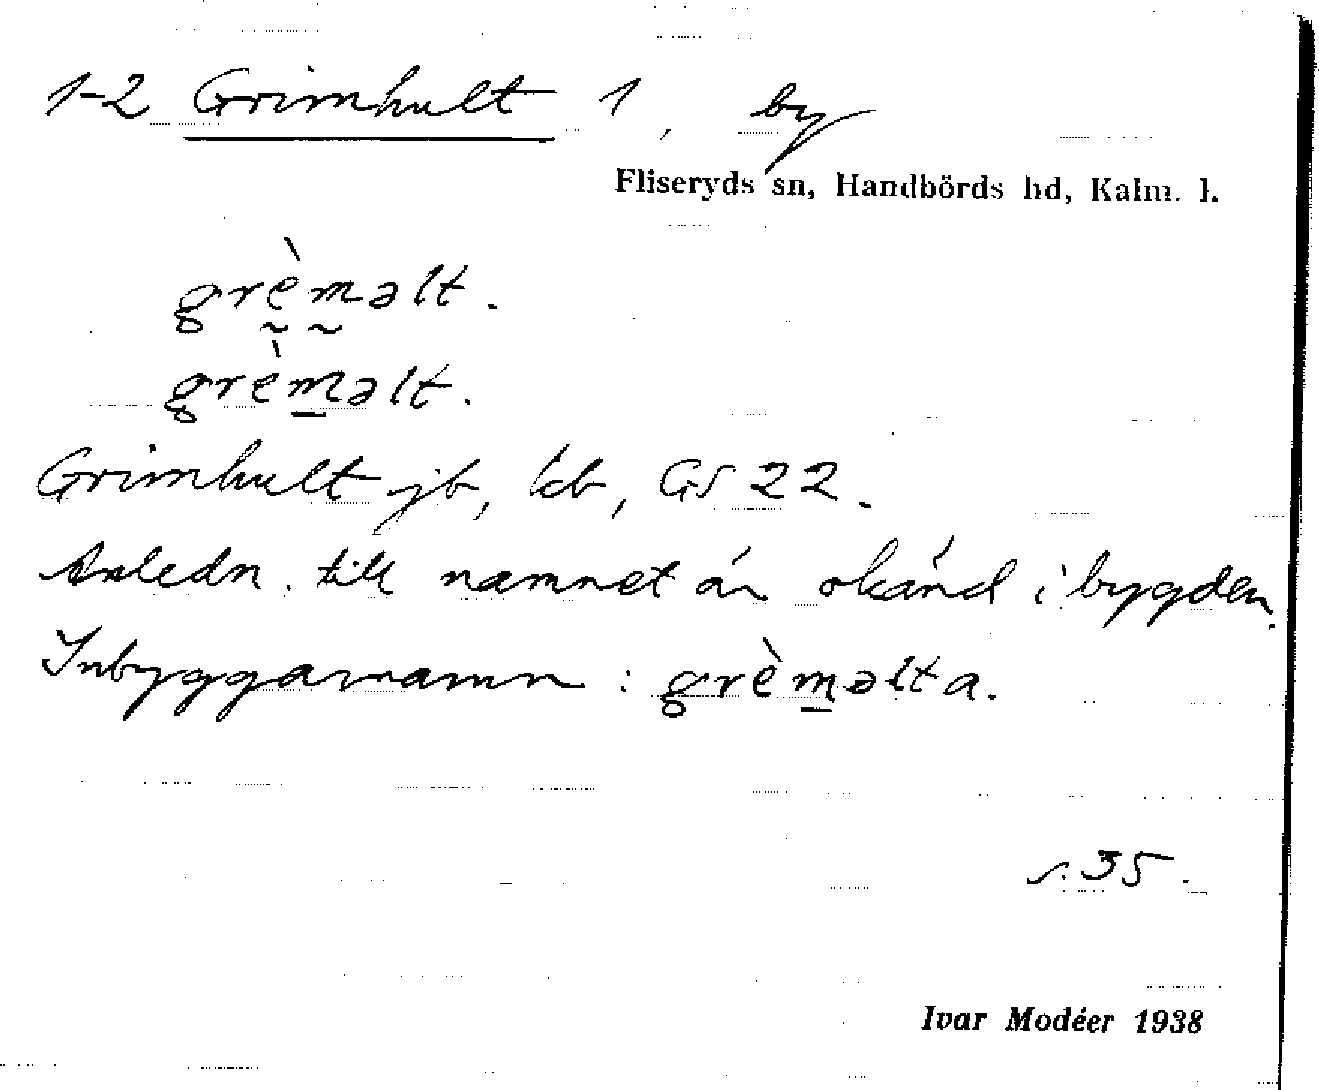 1-2 Grimhult 1, by
Fliseryds sn, Handbörds hd, Kalm. l.
grèməlt.
grèməlt.
Grimhult jb, kb, GS 22.
Anledn. till namnet är okänd i bygden.
Inbyggarnamn: grèməlta.
s. 35.
Ivar Modéer 1938